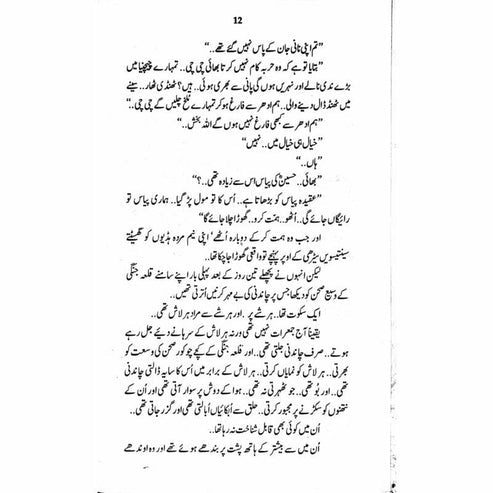 12
"تم اپنی نانی جان کے پاس نہیں گئے تھے.."
"بتایا تو ہے کہ وہ حربہ کام نہیں کرتا بھائی چی چی.. تمہارے پیچنیا میں
بڑے ندی نالے اور نہریں ہوں گی پانی سے بھری ہوئی.. ہیں؟ ٹھنڈی ٹھار.. سینے
میں ٹھنڈ ڈال دینے والی.. ہم ادھر سے فارغ ہو کر تمہارے نلخ چلیں گے چی چی.."
"ہم ادھر سے کبھی فارغ نہیں ہوں گے اللہ بخش.."
"خیال ہی خیال میں.. نہیں"
"ہاں.."
"بھائی.. حسینؓ کی پیاس اس سے زیادہ تھی..؟"
"عقیدہ پیاس کو بڑھاتا ہے.. اُس کا تو مول پڑ گیا.. ہماری پیاس تو
رائیگاں جائے گی.. اُٹھو.. ہمت کرو.. گھوڑا چلا جائے گا"
اور جب وہ ہمت کر کے دوبارہ اُٹھے' اپنی نیم مردہ ہڈیوں کو گھسیٹتے
سینتیسویں سیڑھی کے اوپر پہنچے تو واقعی گھوڑا جا چکا تھا..
لیکن انہوں نے پچھلے تین روز کے بعد پہلی بار اپنے سامنے قلعہ جنگی
کے وسیع صحن کو دیکھا جس پر چاندنی کی بے مہر کرنیں اُترتی تھیں..
ایک سکوت تھا.. ہر شے پر.. اور ہر شے سے مراد ہر لاش تھی..
یقیناً آج جمعرات نہیں تھی ورنہ ہر لاش کے سرہانے دیئے جل رہے
ہوتے.. صرف چاندنی جلتی تھی.. اور قلعہ جنگی کے کچے چوکور صحن کی وسعت کو
بھرتی تھی.. ہر لاش کو نمایاں کرتی.. ہر لاش کے برابر میں اُس کا سایہ ڈالتی چاندنی
تھی.. اور بُو تھی.. جو ٹھہرتی نہ تھی.. ہوا کے دوش پر سوار آتی تھی اور اُن کے
نتھنوں کو سکڑنے پر مجبور کرتی.. حلق سے اُبکائیاں اُبالتی تھی اور گزر جاتی تھی..
اُن میں کوئی بھی قابل شناخت نہ رہا تھا..
اُن میں سے بیشتر کے ہاتھ پشت پر بندھے ہوئے تھے اور وہ اوندھے